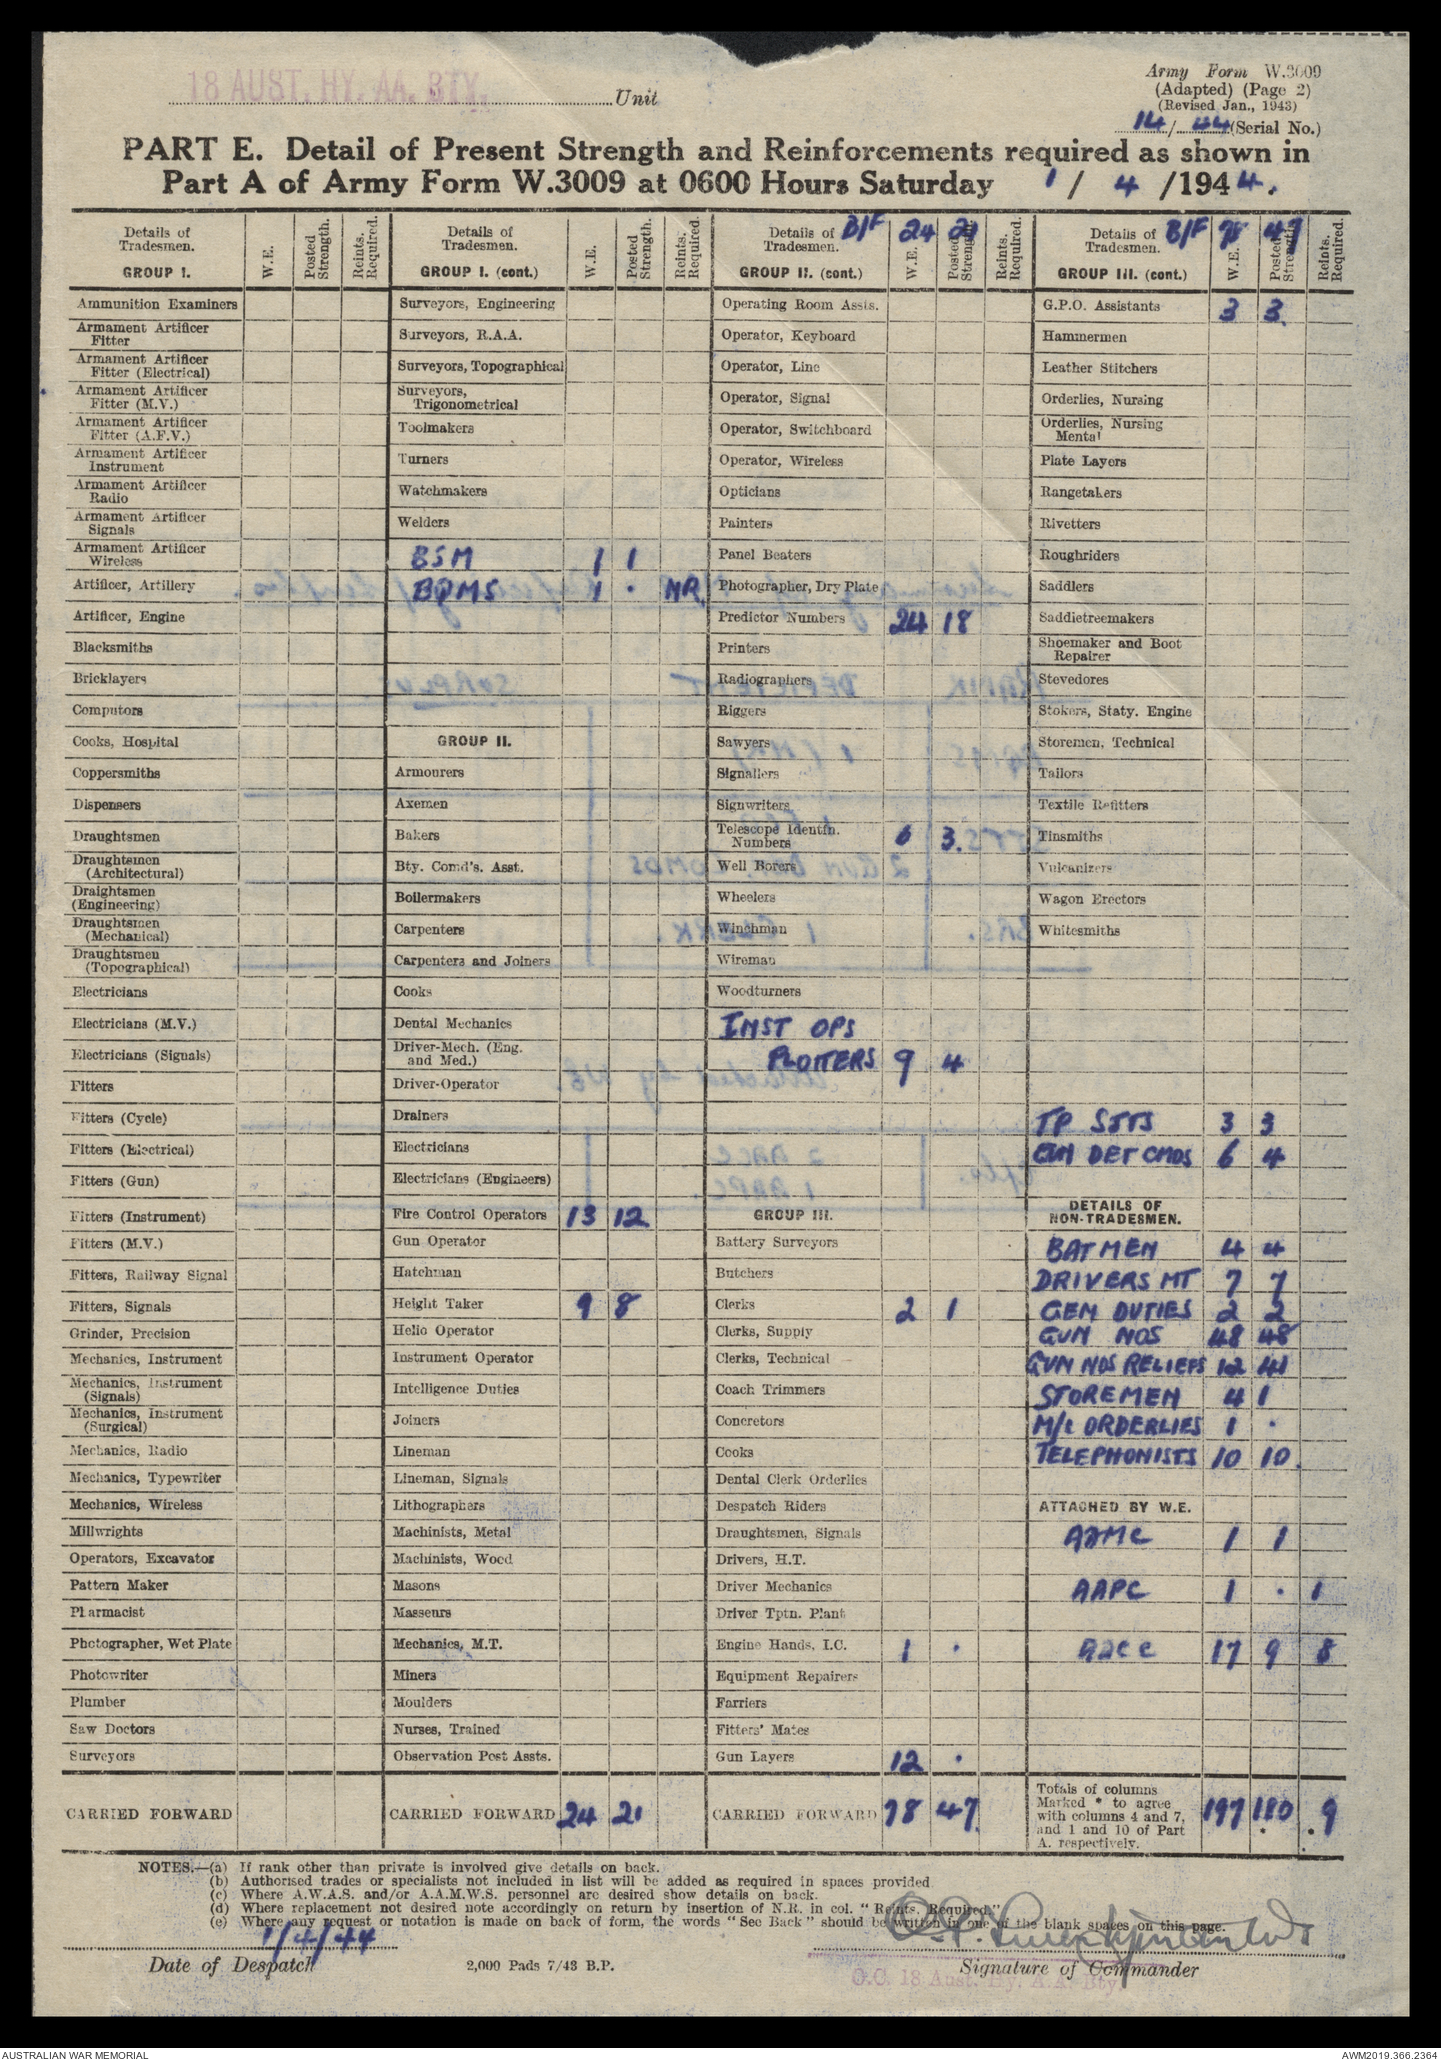 18 AUST. HY. AA. BTY. Unit
Army Form W.3009
(Adapted) (Page 2)
(Revised Jan., 1943)
14/44 (Serial No.)
PART E. Detail of Present Strength and Reinforcements required as shown in
Part A of Army Form W.3009 at 0600 Hours Saturday 1/ 4 /1944.
Details of Tradesmen. GROUP I. W.E. Posted Strength. Reints. Required.
Ammunition Examiners
Armament Artificer Fitter
Armament Artificer Fitter (Electrical)
Armament Artificer Fitter (M.V.)
Armament Artificer Fitter (A.F.V.)
Armament Artificer Instrument
Armament Artificer Radio
Armament Artificer Signals
Armament Artificer Wireless
Artificer, Artillery
Artificer, Engine
Blacksmiths
Bricklayers
Computors
Cooks, Hospital
Coppersmiths
Dispensers
Draughtsmen
Draughtsmen (Architectural)
Draightsmen (Engineering)
Draughtsmen (Mechanical)
Draughtsmen (Topographical)
Electricians
Electricians (M.V.)
Electricians (Signals)
Fitters
Fitters (Cycle)
Fitters (Electrical)
Fitters (Gun)
Fitters (Instrument)
Fitters (M.V.)
Fitters, Railway Signal
Fitters, Signals
Grinder, Precision
Mechanics, Instrument
Mechanics, Instrument (Signals)
Mechanics, Instrument (Surgical)
Mechanics, Radio
Mechanics, Typewriter
Mechanics, Wireless
Millwrights
Operators, Excavator
Pattern Maker
Pharmacist
Photographer, Wet Plate
Photowriter
Plumber
Saw Doctors
Surveyors
CARRIED FORWARD
Details of Tradesmen. GROUP I. (cont.) W.E. Posted Strength. Reints. Required.
Surveyors, Engineering
Surveyors, R.A.A.
Surveyors, Topographical
Surveyors, Trigonometrical
Toolmakers
Turners
Watchmakers
Welders
BSM 1 1
BQMS 1 . NR.
GROUP II.
Armourers
Axemen
Bakers
Bty. Comd's. Asst.
Boilermakers
Carpenters
Carpenters and Joiners
Cooks
Dental Mechanics
Driver-Mech. (Eng. and Med.)
Driver-Operator
Drainers
Electricians
Electricians (Engineers)
Fire Control Operators 13 12
Gun Operator
Hatchman
Height Taker 9 8
Helio Operator
Instrument Operator
Intelligence Duties
Joiners
Lineman
Lineman, Signals
Lithographers
Machinists, Metal
Machinists, Wood
Masons
Masseurs
Mechanics, M.T.
Miners
Moulders
Nurses, Trained
Observation Post Assts.
CARRIED FORWARD 24 21
Details of Tradesmen. B/F 24 21 GROUP II. (cont.) W.E. Posted Strength. Reints. Required.
Operating Room Assts.
Operator, Keyboard
Operator, Line
Operator, Signal
Operator, Switchboard
Operator, Wireless
Opticians
Painters
Panel Beaters
Photographer, Dry Plate
Predictor Numbers 24 18
Printers
Radiographers
Riggers
Sawyers
Signallers
Signwriters
Telescope Identfn. Numbers 6 3.
Well Borers
Wheelers
Winchman
Wireman
Woodturners
INST OPS
PLOTTERS 9 4
GROUP III.
Battery Surveyors
Butchers
Clerks 2 1
Clerks, Supply
Clerks, Technical
Coach Trimmers
Concretors
Cooks
Dental Clerk Orderlies
Despatch Riders
Draughtsmen, Signals
Drivers, H.T.
Driver Mechanics
Driver Tptn. Plant
Engine Hands, I.C. 1 .
Equipment Repairers
Farriers
Fitters' Mates
Gun Layers 12 .
CARRIED FORWARD 78 47
Details of Tradesmen. B/F 78 47 GROUP III. (cont.) W.E. Posted Strength. Reints. Required.
G.P.O. Assistants 3 3.
Hammermen
Leather Stitchers
Orderlies, Nursing
Orderlies, Nursing Mental
Plate Layers
Rangetakers
Rivetters
Roughriders
Saddlers
Saddletreemakers
Shoemaker and Boot Repairer
Stevedores
Stokers, Staty. Engine
Storemen, Technical
Tailors
Textile Refitters
Tinsmiths
Vulcanizers
Wagon Erectors
Whitesmiths
TP SJTS 3 3
GUN DET CMDS 6 4
DETAILS OF NON-TRADESMEN.
BATMEN 4 4
DRIVERS MT 7 7
GEN DUTIES 2 2
GUN NOS 48 48
GUN NOS RELIEFS 12 41
STOREMEN 4 1
M/C ORDERLIES 1 .
TELEPHONISTS 10 10.
ATTACHED BY W.E.
AAMC 1 1
AAPC 1 . 1
AACC 17 9 8
Totals of columns Marked * to agree with columns 4 and 7, and 1 and 10 of Part A. respectively. 197 180 9
NOTES.—(a) If rank other than private is involved give details on back.
(b) Authorised trades or specialists not included in list will be added as required in spaces provided
(c) Where A.W.A.S. and/or A.A.M.W.S. personnel are desired show details on back.
(d) Where replacement not desired note accordingly on return by insertion of N.R. in col. "Reints. Required."
(e) Where any request or notation is made on back of form, the words "See Back" should be written in one of the blank spaces on this page.
1/4/44
Date of Despatch
2,000 Pads 7/43 B.P.
Signature of Commander
O.C. 18 Aust. Hy. A.A. Bty.
AUSTRALIAN WAR MEMORIAL
AWM2019.366.2364